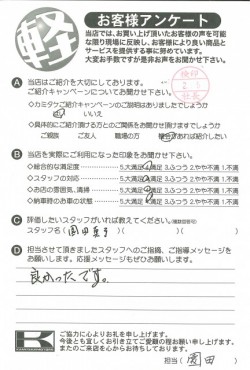 軽
お客様アンケート
当店では、お買い上げ頂けたお客様の声を可能
な限り現場に反映し、お客様により良い商品と
サービスを提供する事に努めています。
大変お手数ですが是非お声をお聞かせ下さい。
A 当店はご紹介を大切にしております。
ご紹介キャンペーンについてお聞かせ下さい
◇カミタケご紹介キャンペーンのご説明はありましたでしょうか
はい いいえ
ご親族 ご友人 職場の方 あれば紹介したい
B 当店を実際にご利用になった印象をお聞かせ下さい。
◇総合的な満足度 5.大満足 4.満足 3.ふつう 2.やや不満 1.不満
◇スタッフの対応 5.大満足 4.満足 3.ふつう 2.やや不満 1.不満
◇お店の雰囲気、清掃 5.大満足 4.満足 3.ふつう 2.やや不満 1.不満
◇納車時のお車の状態 5.大満足 4.満足 3.ふつう 2.やや不満 1.不満
C 評価したいスタッフがいれば教えてください。
スタッフ名（園田
D 担当させて頂きましたスタッフへのご指摘、ご指導メッセージを
お願いします。応援メッセージもぜひお願いします。
良かったです。
ご協力に心よりお礼を申し上げます。
今後とも宜しくお引き立てご愛顧の程お願い申し上げます。
またのご来店を心からお待ちしております。
担当（園田）